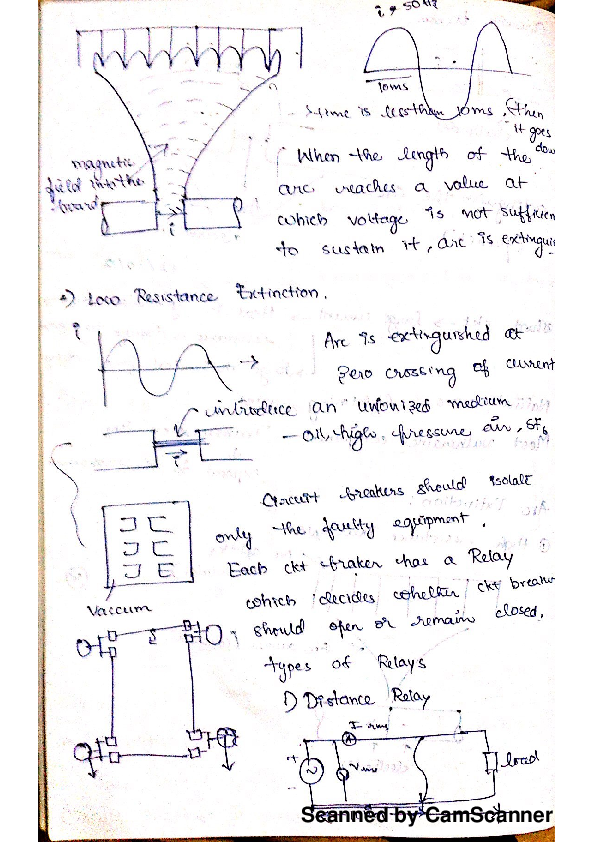 i → 50 Hz
10ms
time is less than 10ms, then
it goes
down
magnetic
field into the
board
i
When the length of the
arc reaches a value at
which voltage is not sufficien
to sustain it, arc is extinguis
2) Low Resistance Extinction.
i
Arc is extinguished at
zero crossing of current
introduce an unionized medium
- Oil, high pressure air, SF6
i
Circuit breakers should isolate
only the faulty equipment.
Each ckt braker has a Relay
which decides whether ckt breaker
should open or remain closed.
Vaccum
types of Relays
1) Distance Relay
I rms
A
Vrms
load
Scanned by CamScanner